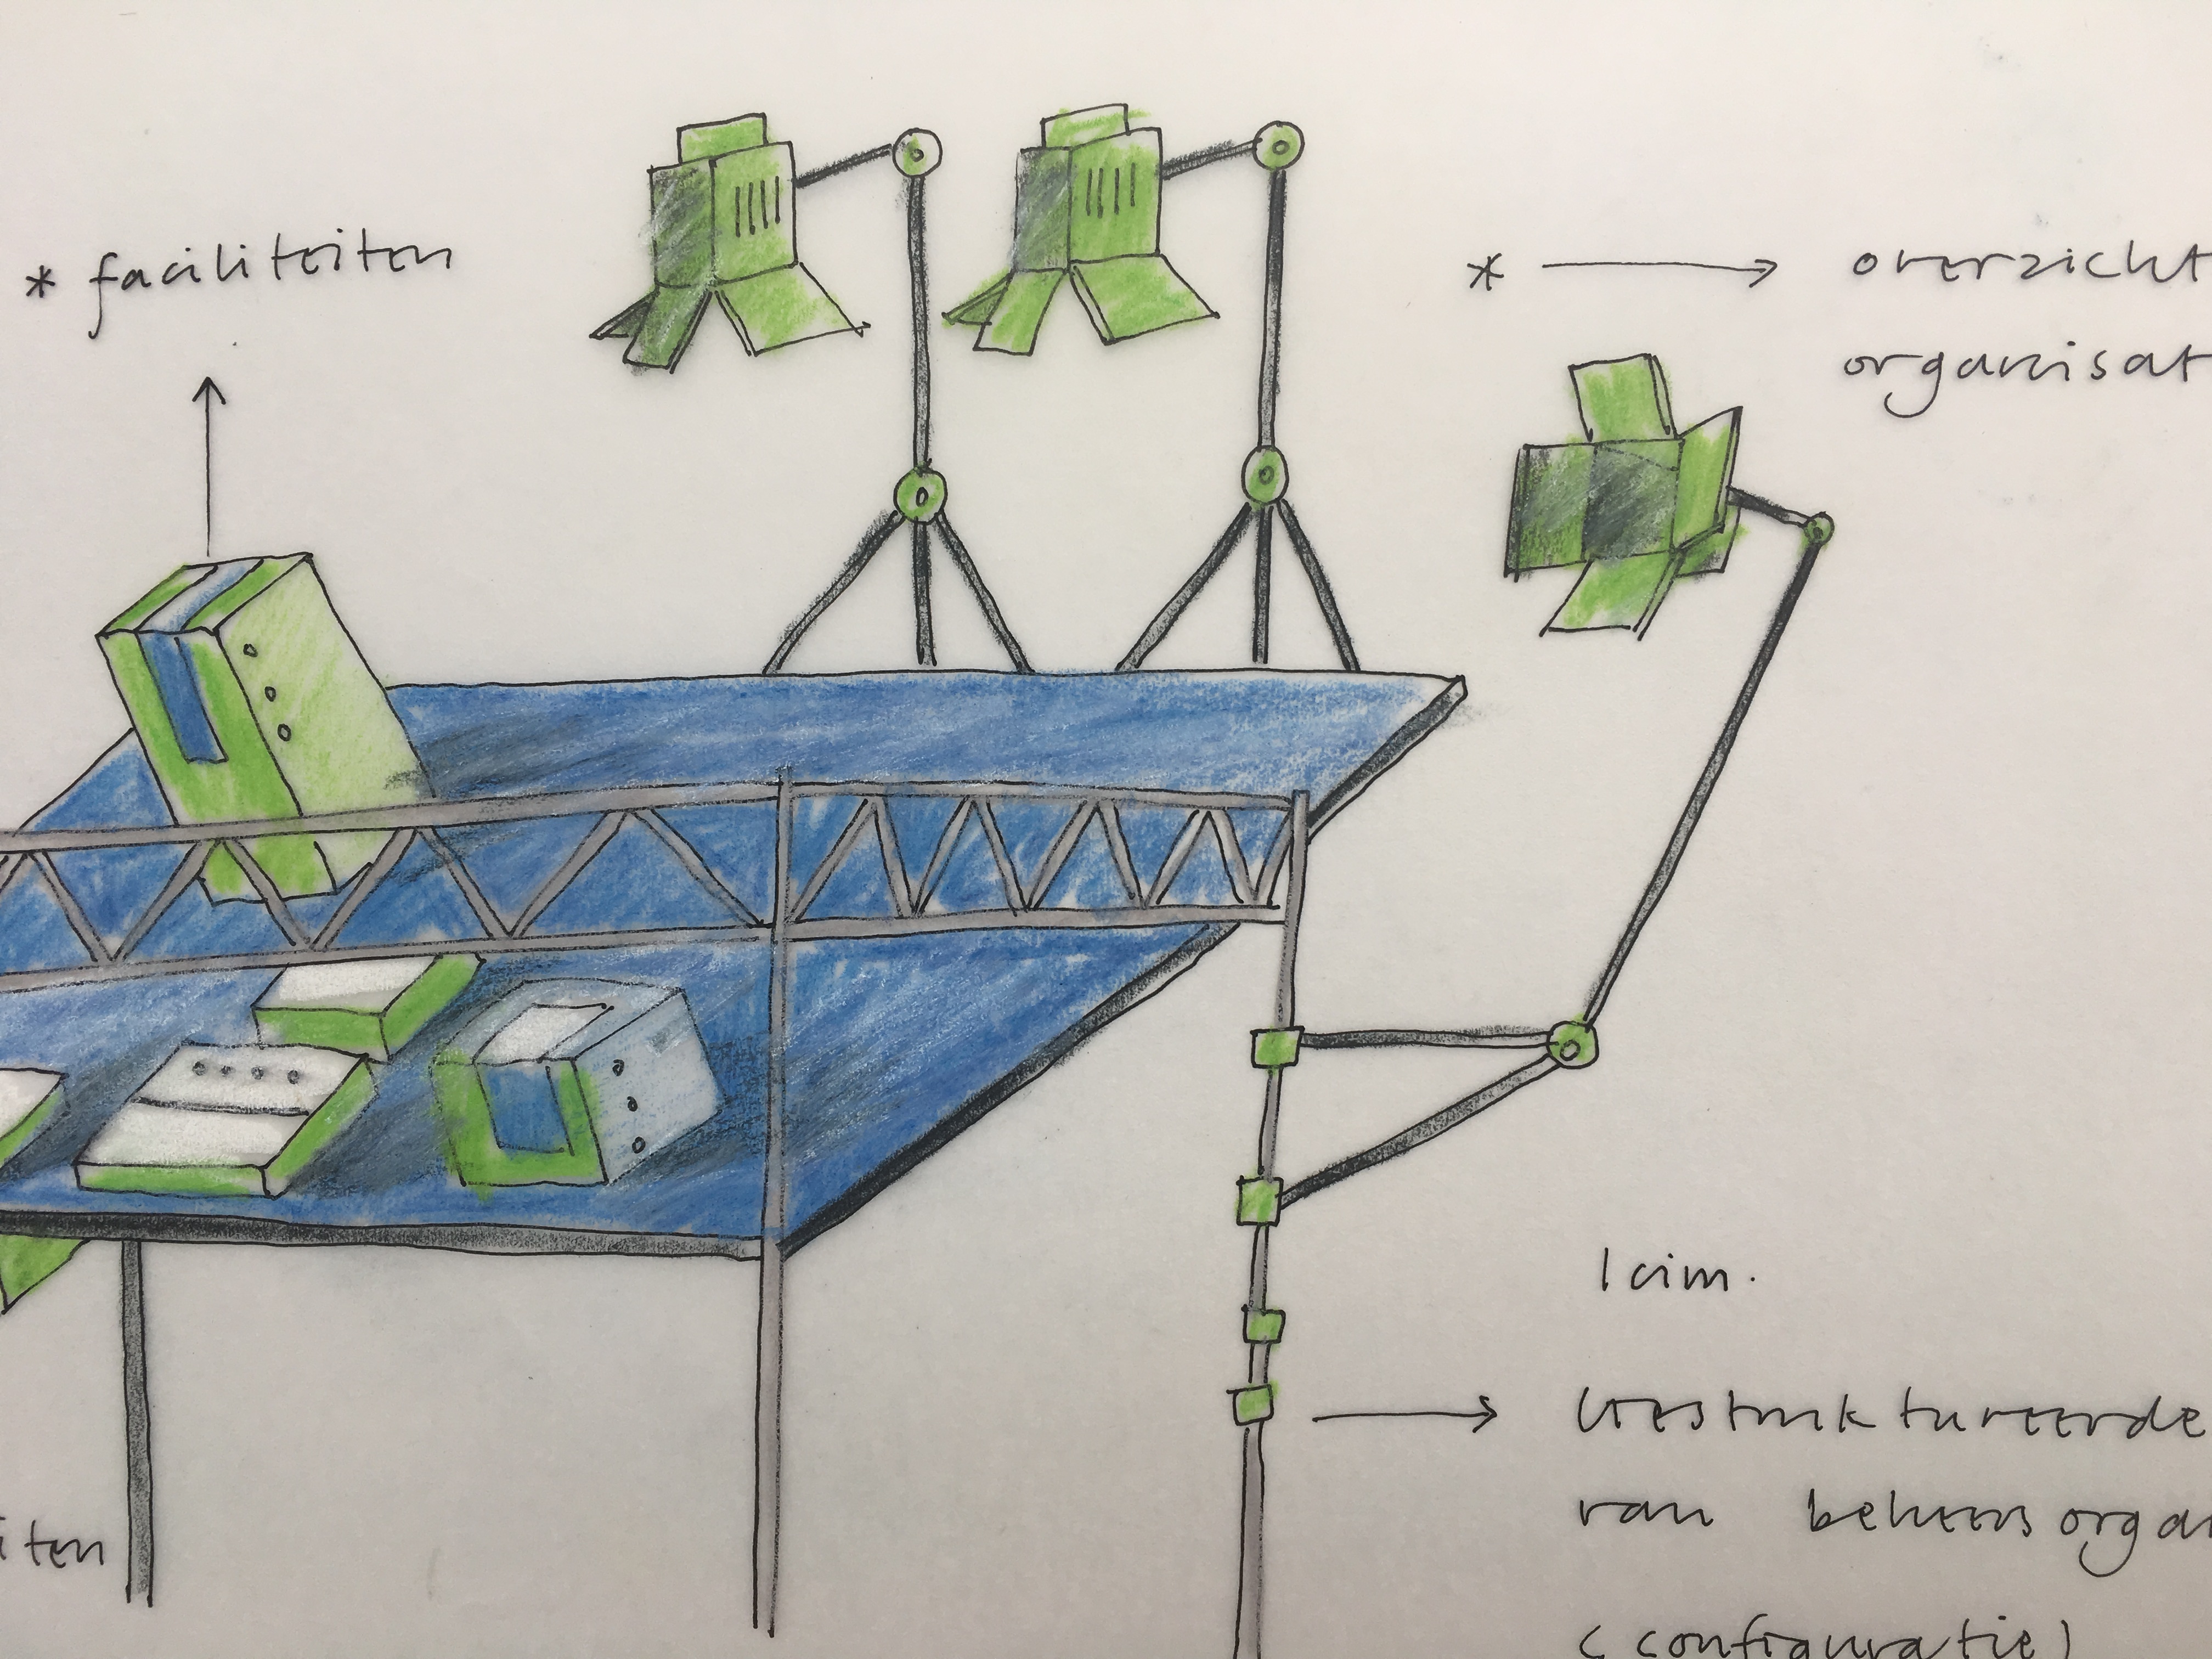 * faciliteiten
* → overzicht
organisat
icim.
Gestruktureerde
van beheersorgan
iten
(configuratie)